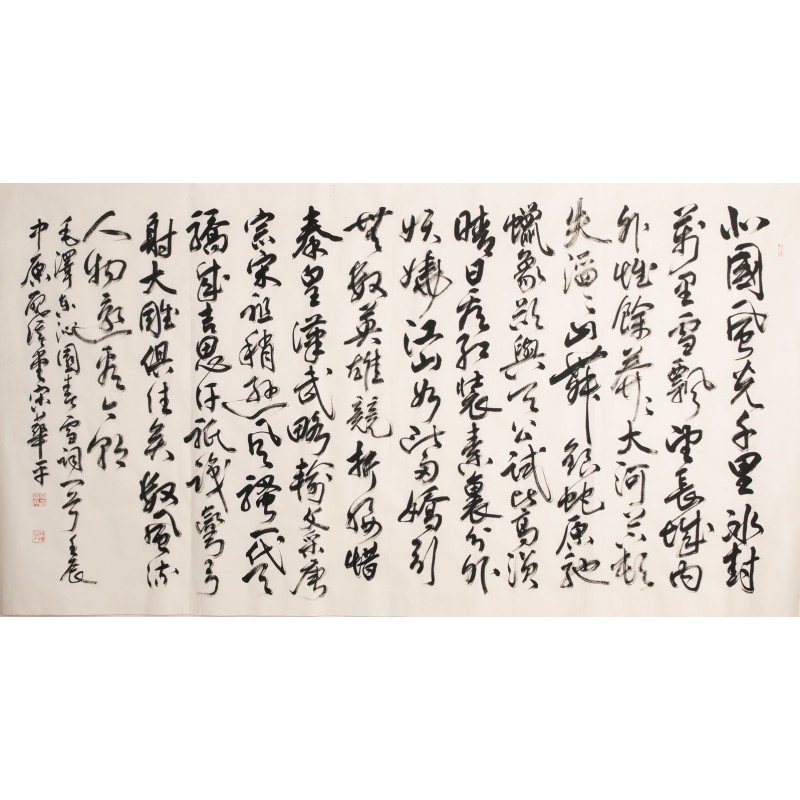 北國風光千里冰封
萬里雪飄望長城內
外惟餘莽〻大河上下頓
失滔〻山舞銀蛇原馳
蠟象欲與天公試比高須
晴日看紅裝素裹分外
妖嬈江山如此多嬌引
無數英雄競折腰惜
秦皇漢武略輸文采唐
宗宋祖稍遜風騷一代天
驕成吉思汗祇識彎弓
射大雕俱往矣數風流
人物還看今朝
毛澤東沁園春雪詞一首壬辰
中原宋華平